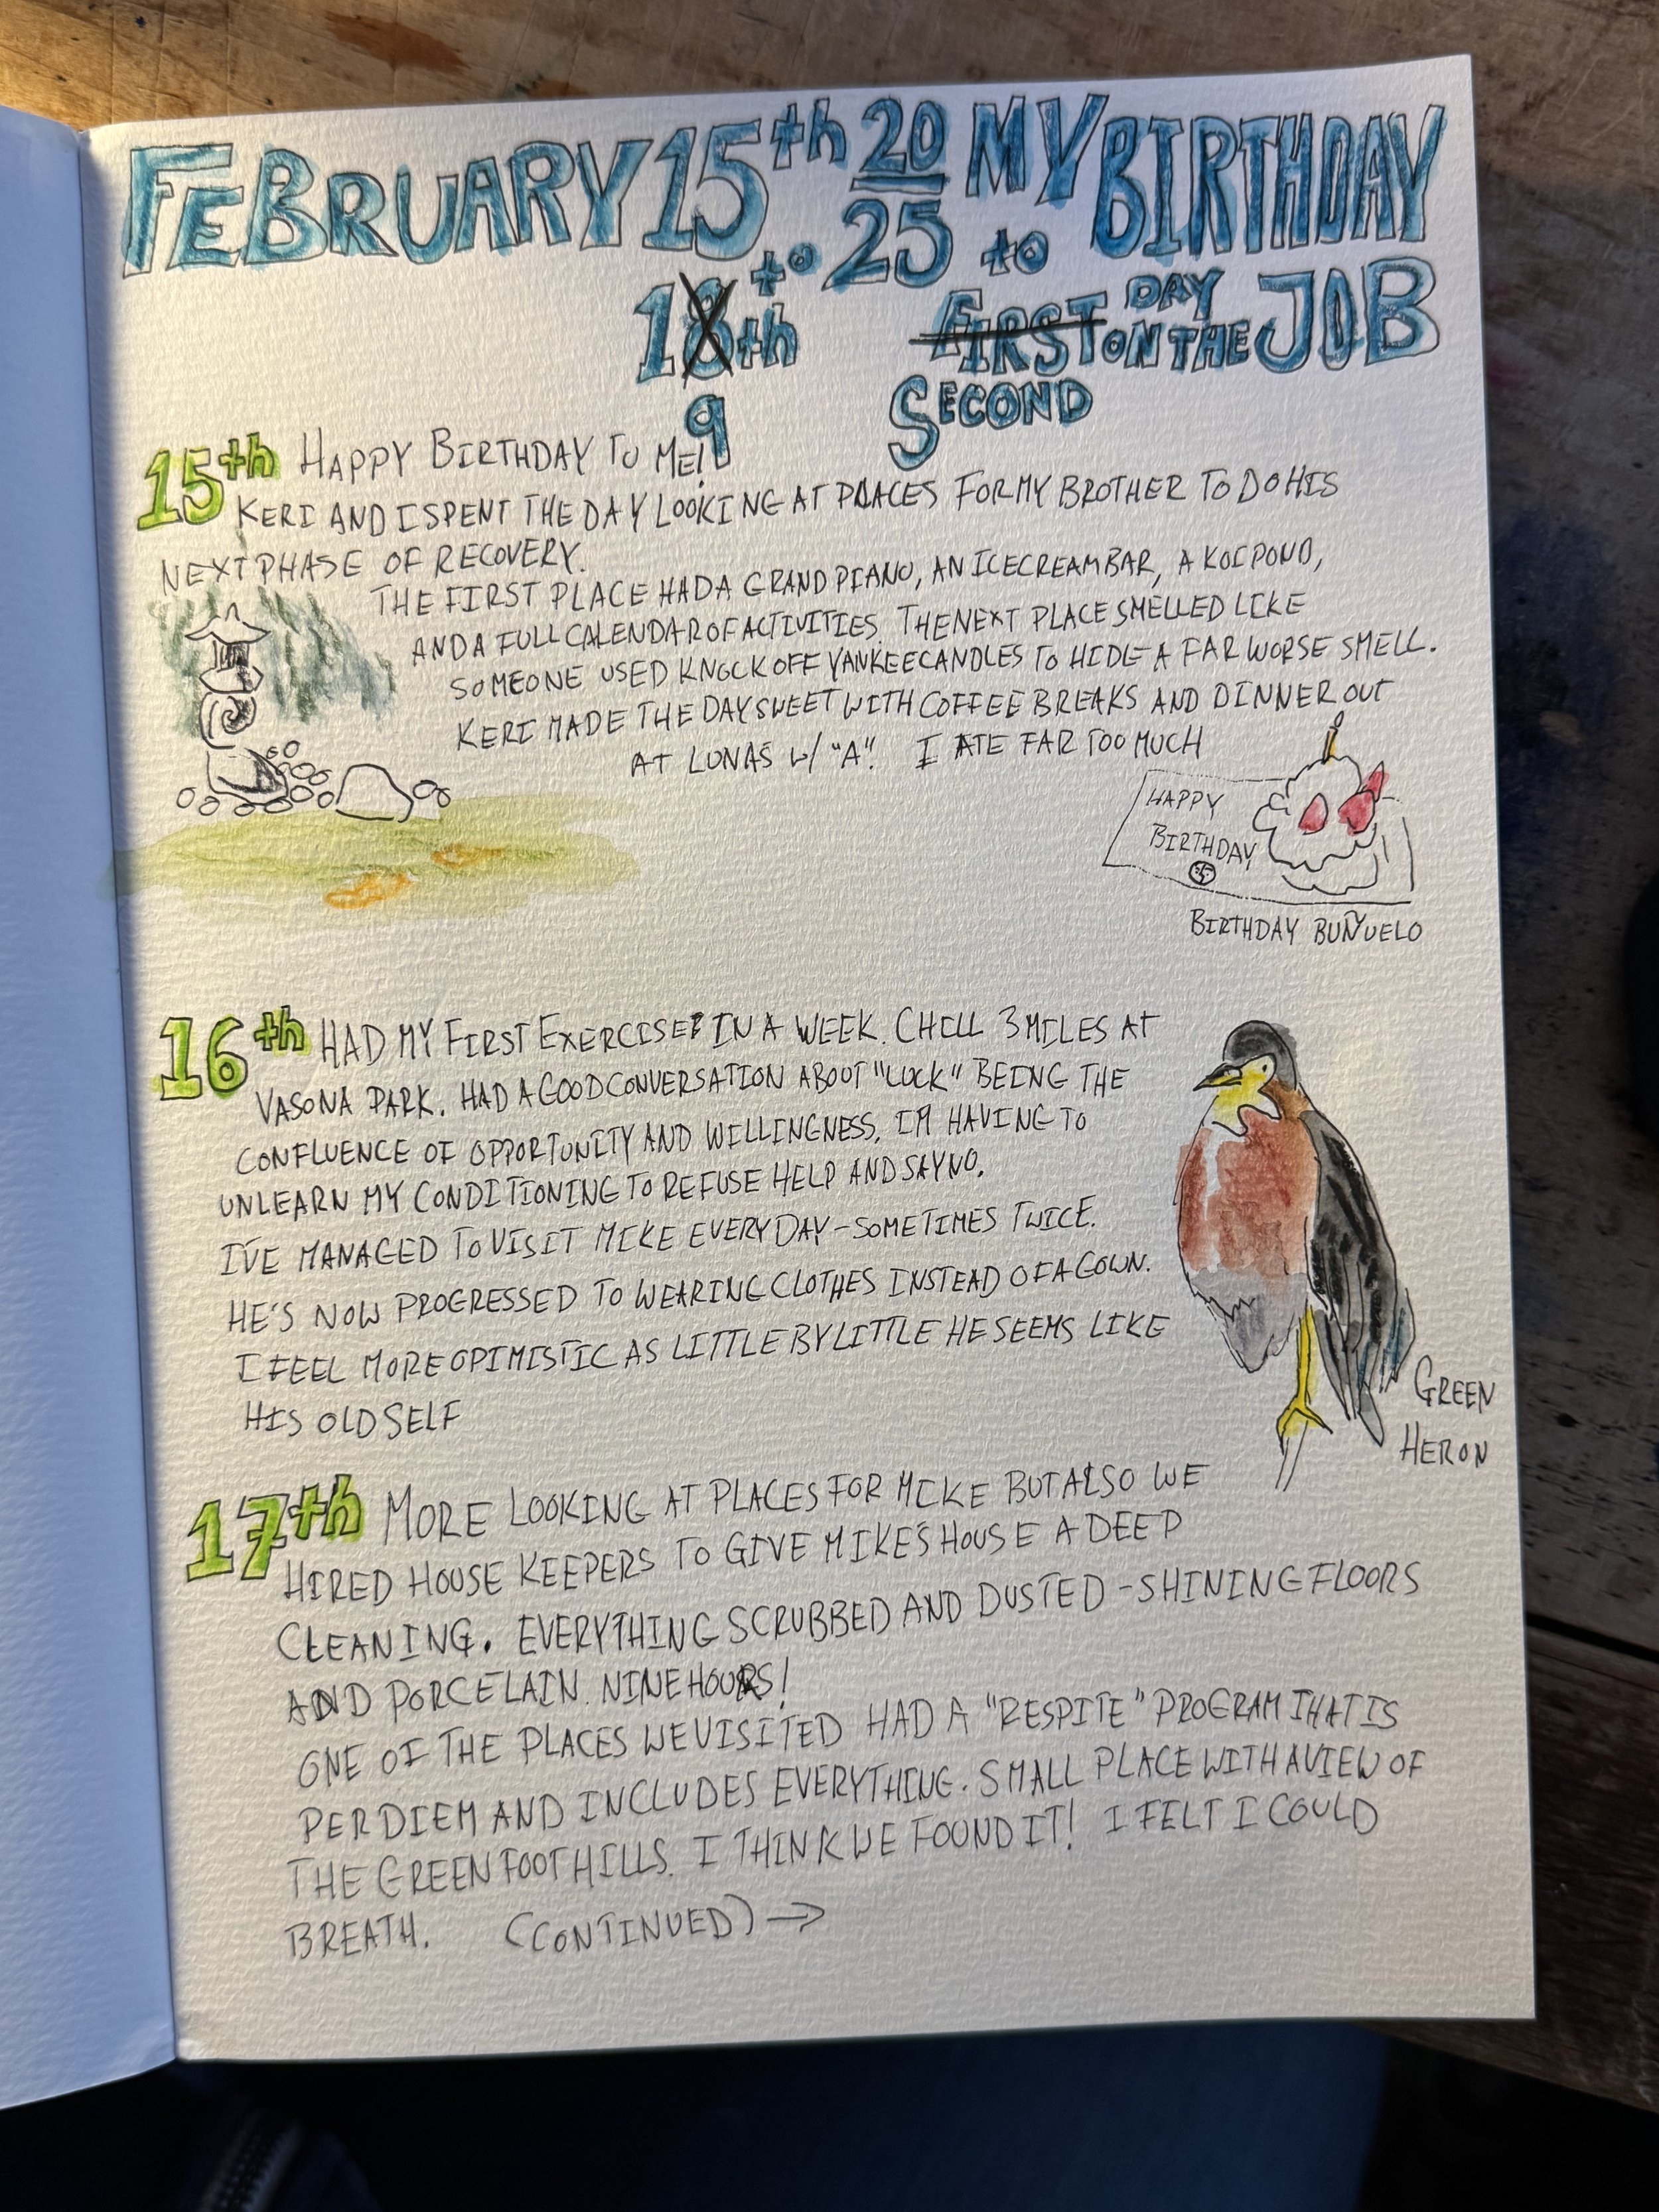 FEBRUARY 15th 20 MY BIRTHDAY
to 25 to
18th FIRST DAY ON THE JOB
9 SECOND
15th HAPPY BIRTHDAY TO ME!
KERI AND I SPENT THE DAY LOOKING AT PLACES FOR MY BROTHER TO DO HIS
NEXT PHASE OF RECOVERY.
THE FIRST PLACE HAD A GRAND PIANO, AN ICECREAM BAR, A KOI POND,
AND A FULL CALENDAR OF ACTIVITIES. THE NEXT PLACE SMELLED LIKE
SOMEONE USED KNOCK OFF YANKEE CANDLES TO HIDE A FAR WORSE SMELL.
KERI MADE THE DAY SWEET WITH COFFEE BREAKS AND DINNER OUT
AT LUNAS W/ "A". I ATE FAR TOO MUCH
HAPPY
BIRTHDAY
BIRTHDAY BUÑUELO
16th HAD MY FIRST EXERCISE IN A WEEK. CHILL 3 MILES AT
VASONA PARK. HAD A GOOD CONVERSATION ABOUT "LUCK" BEING THE
CONFLUENCE OF OPPORTUNITY AND WILLINGNESS. I'M HAVING TO
UNLEARN MY CONDITIONING TO REFUSE HELP AND SAY NO.
I'VE MANAGED TO VISIT MIKE EVERY DAY - SOMETIMES TWICE.
HE'S NOW PROGRESSED TO WEARING CLOTHES INSTEAD OF A GOWN.
I FEEL MORE OPIMISTIC AS LITTLE BY LITTLE HE SEEMS LIKE
HIS OLD SELF
GREEN
HERON
17th MORE LOOKING AT PLACES FOR MIKE BUT ALSO WE
HIRED HOUSE KEEPERS TO GIVE MIKE'S HOUSE A DEEP
CLEANING. EVERYTHING SCRUBBED AND DUSTED - SHINING FLOORS
AND PORCELAIN. NINE HOURS!
ONE OF THE PLACES WE VISITED HAD A "RESPITE" PROGRAM THAT IS
PER DIEM AND INCLUDES EVERYTHING. SMALL PLACE WITH A VIEW OF
THE GREEN FOOTHILLS. I THINK WE FOUND IT! I FELT I COULD
BREATH. (CONTINUED) →